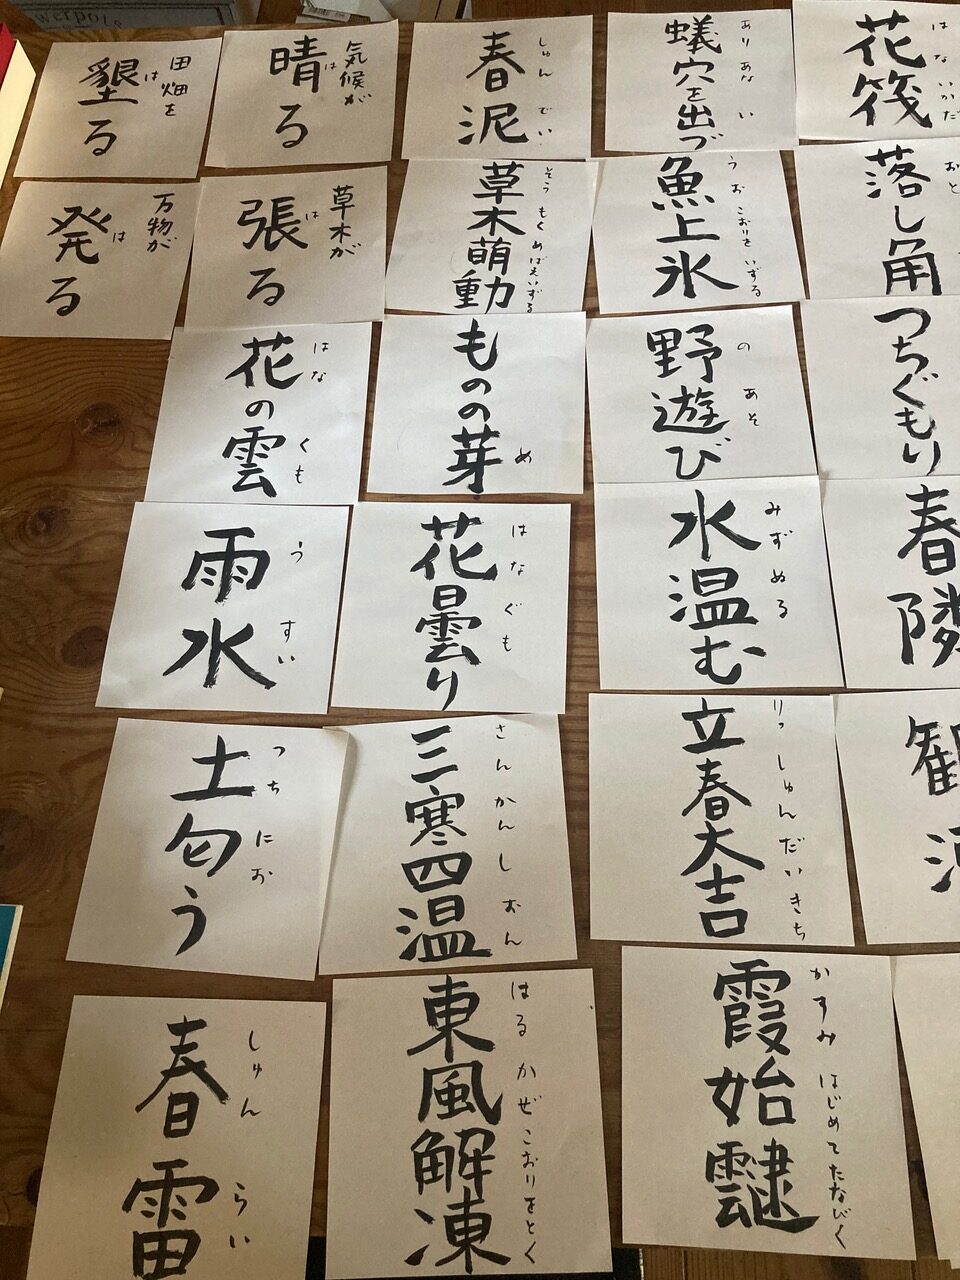 werpots
田畑を
墾る
は
気候が
晴る
は
春泥
しゅんでい
蟻穴を出づ
ありあない
花筏
はないかだ
万物が
発る
は
草木が
張る
は
草木萌動
そうもくめばえいずる
魚上氷
うおこおりをいずる
落し角
おと
花の雲
はなくも
ものの芽
め
野遊び
のあそ
つちぐもり
雨水
うすい
花曇り
はなぐも
水温む
みずぬる
春隣
土匂う
つちにお
三寒四温
さんかんしおん
立春大吉
りっしゅんだいきち
春雷
しゅんらい
東風解凍
はるかぜこおりをとく
霞始靆
かすみはじめてたなびく